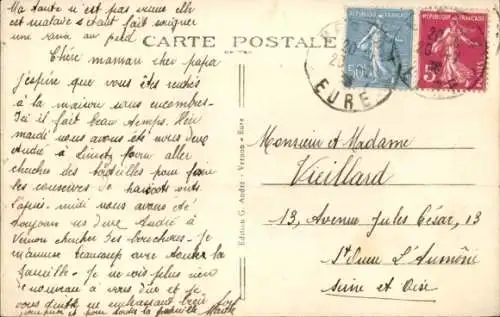 Ma tante n'est pas venue elle
est malade s'étant fait soigner
une au pied
CARTE POSTALE
Chère maman cher papa
j'espère que vous êtes rentrés
à la maison sans encombres-
Ici il fait beau temps. Hier
mardi nous avons été nous deux
André à pour aller
chercher des bouteilles pour faire
les conserves de haricots verts.
l'après midi nous avons été
toujours nous deux André à
Vernon chercher des
m'amuse beaucoup avec toute la
famille- Je ne vois plus rien
de nouveau à vous dire et je
vous quitte en embrassant bien
pour toute la famille
Edition G. André - Vernon - Eure
RÉPUBLIQUE FRANÇAISE
50c
RÉPUBLIQUE FRANÇAISE
5
EURE
Monsieur et Madame
Vieillard
13, Avenue Jules César, 13
St Ouen L'Aumône
Seine et Oise